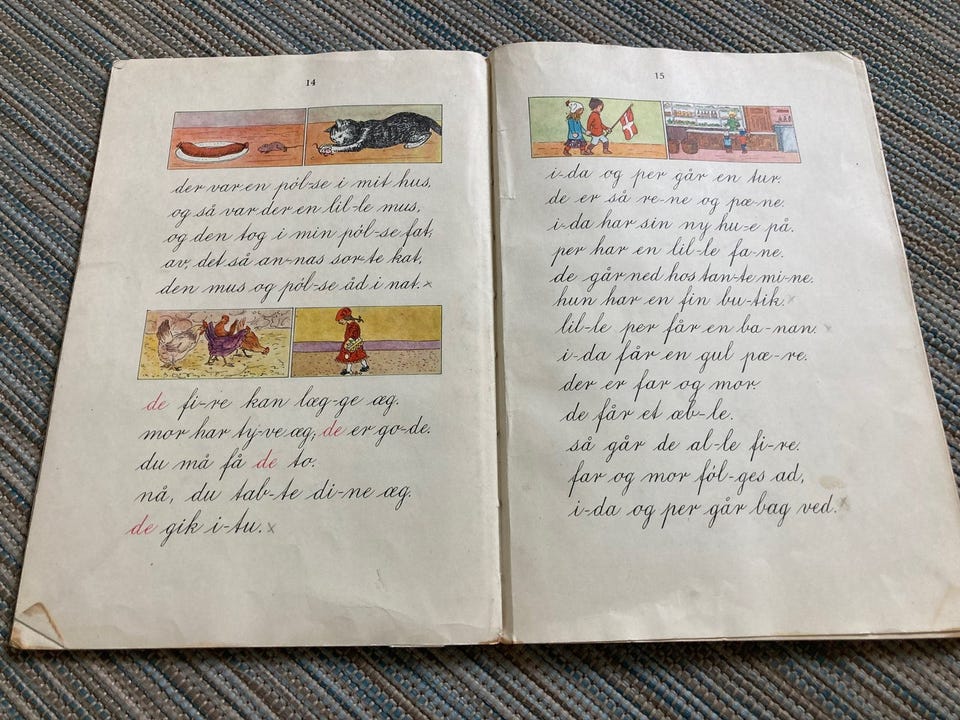 14
der var en pól-se i mit hus,
og så var der en lil-le mus,
og den tog i min pól-se fat,
av, det så an-nas sor-te kat,
den mus og pól-se åd i nat.
de fi-re kan læg-ge æg.
mor har ty-ve æg, de er go-de.
du må få de to.
nå, du tab-te di-ne æg.
de gik i-tu.
15
i-da og per går en tur.
de er så re-ne og pæ-ne.
i-da har sin ny hu-e på.
per har en lil-le fa-ne.
de går ned hos tan-te mi-ne.
hun har en fin bu-tik.
lil-le per får en ba-nan.
i-da får en gul pæ-re.
der er far og mor
de får et æb-le.
så går de al-le fi-re.
far og mor föl-ges ad,
i-da og per går bag ved.